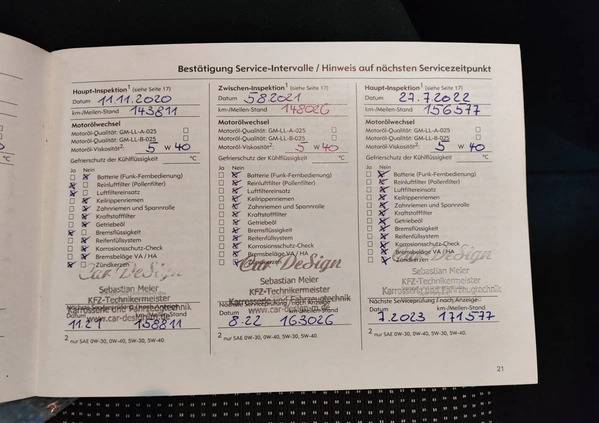 Bestätigung Service-Intervalle / Hinweis auf nächsten Servicezeitpunkt
Haupt-Inspektion¹ (siehe Seite 17)
Datum 11.11.2020
km-/Meilen-Stand 143811
Motorölwechsel
Motoröl-Qualität: GM-LL-A-025
Motoröl-Qualität: GM-LL-B-025
Motoröl-Viskosität²: 5 W 40
Gefrierschutz der Kühlflüssigkeit °C
Ja Nein
Batterie (Funk-Fernbedienung)
Reinluftfilter (Pollenfilter)
Luftfiltereinsatz
Keilrippenriemen
Zahnriemen und Spannrolle
Kraftstofffilter
Getriebeöl
Bremsflüssigkeit
Reifenfüllsystem
Korrosionsschutz-Check
Bremsbeläge VA / HA
Zündkerzen
Car DeSign
Sebastian Meier
KFZ-Technikermeister
Karrosserie und Fahrzeugtechnik
www.car-design-m.de
Nächste Serviceprüfung / nach Anzeige
Datum km-/Meilen-Stand
11.21 158811
² nur SAE 0W-30, 0W-40, 5W-30, 5W-40.
Zwischen-Inspektion¹ (siehe Seite 17)
Datum 5.8.2021
km-/Meilen-Stand 148026
Motorölwechsel
Motoröl-Qualität: GM-LL-A-025
Motoröl-Qualität: GM-LL-B-025
Motoröl-Viskosität²: 5 W 40
Gefrierschutz der Kühlflüssigkeit °C
Ja Nein
Batterie (Funk-Fernbedienung)
Reinluftfilter (Pollenfilter)
Luftfiltereinsatz
Keilrippenriemen
Zahnriemen und Spannrolle
Kraftstofffilter
Getriebeöl
Bremsflüssigkeit
Reifenfüllsystem
Korrosionsschutz-Check
Bremsbeläge VA / HA
Zündkerzen
Car DeSign
Sebastian Meier
KFZ-Technikermeister
Karrosserie und Fahrzeugtechnik
www.car-design-m.de
Nächste Serviceprüfung / nach Anzeige
Datum km-/Meilen-Stand
8.22 163026
² nur SAE 0W-30, 0W-40, 5W-30, 5W-40.
Haupt-Inspektion¹ (siehe Seite 17)
Datum 27.7.2022
km-/Meilen-Stand 156577
Motorölwechsel
Motoröl-Qualität: GM-LL-A-025
Motoröl-Qualität: GM-LL-B-025
Motoröl-Viskosität²: 5 W 40
Gefrierschutz der Kühlflüssigkeit °C
Ja Nein
Batterie (Funk-Fernbedienung)
Reinluftfilter (Pollenfilter)
Luftfiltereinsatz
Keilrippenriemen
Zahnriemen und Spannrolle
Kraftstofffilter
Getriebeöl
Bremsflüssigkeit
Reifenfüllsystem
Korrosionsschutz-Check
Bremsbeläge VA / HA
Zündkerzen
Car DeSign
Sebastian Meier
KFZ-Technikermeister
Karrosserie und Fahrzeugtechnik
Nächste Serviceprüfung / nach Anzeige
Datum km-/Meilen-Stand
7.2023 171577
² nur SAE 0W-30, 0W-40, 5W-30, 5W-40.
21
°C